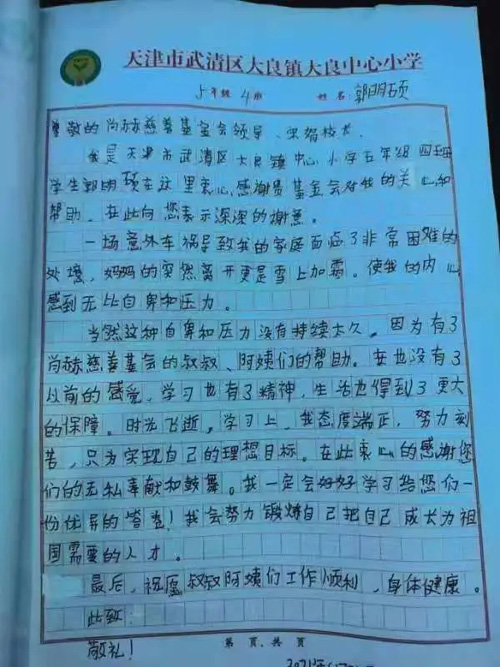 天津市武清区大良镇大良中心小学
5 年级 4 班 姓名:郭明硕
尊敬的尚赫慈善基金会领导、
我是天津市武清区大良镇中心小学五年级四班
学生郭明硕在这里衷心感谢贵基金会对我的关心和
帮助。在此向您表示深深的谢意。
一场意外车祸导致我的家庭面临了非常困难的
处境,妈妈的突然离开更是雪上加霜。使我的内心
感到无比自卑和压力。
当然这种自卑和压力没有持续太久。因为有了
尚赫慈善基金会的叔叔、阿姨们的帮助。在也没有了
以前的感觉,学习也有了精神,生活也得到了更大
的保障。时光飞逝。学习上,我态度端正,努力刻
苦,只为实现自己的理想目标。在此衷心的感谢您
们的无私奉献和鼓舞。我一定会好好学习给您们一
份优异的答卷!我会努力锻炼自己把自己成长为祖
国需要的人才。
最后,祝愿叔叔阿姨们工作顺利,身体健康。
此致
敬礼!
第 页,共 页